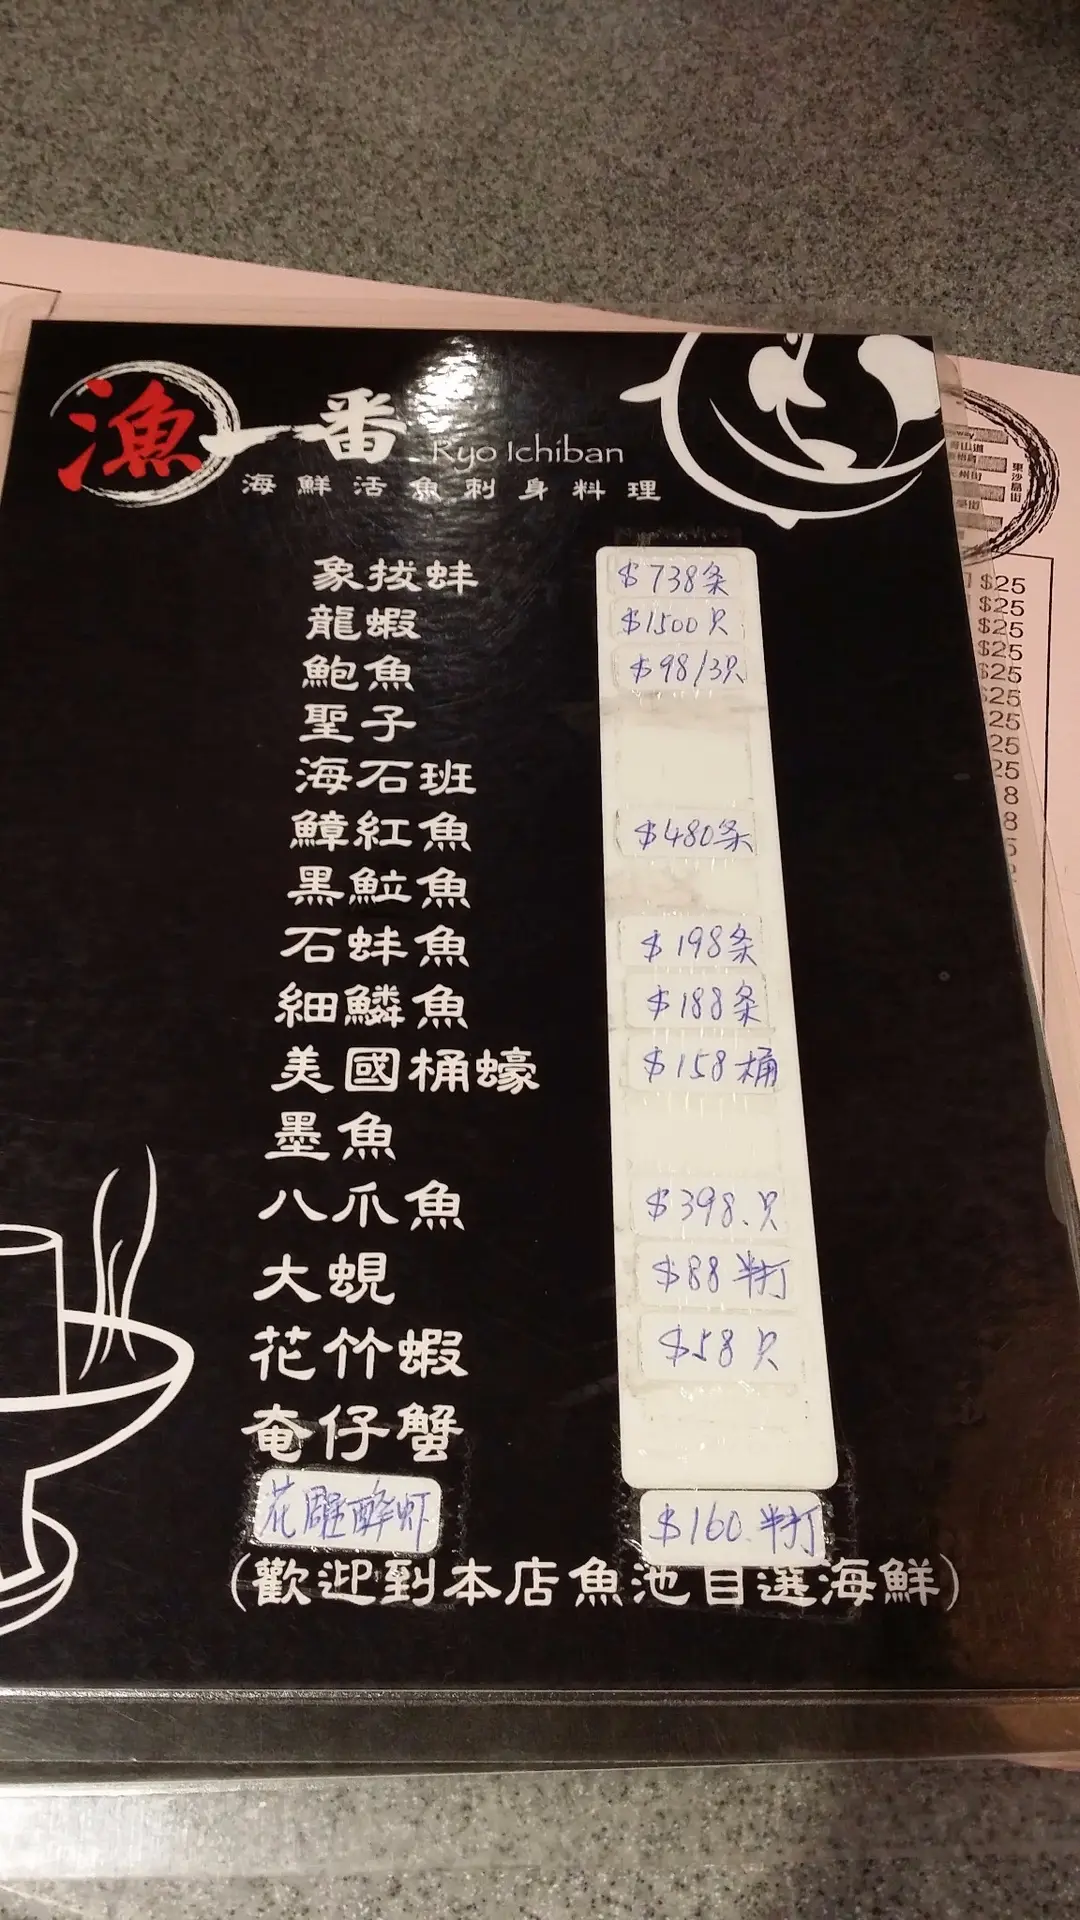 漁一番 Ryo Ichiban
海鮮活魚刺身料理
象拔蚌 $738条
龍蝦 $1500只
鮑魚 $98/3只
聖子
海石班
鱆紅魚 $480条
黑魚立魚
石蚌魚 $198条
細鱗魚 $188条
美國桶蠔 $158桶
墨魚
八爪魚 $398.只
大蜆 $88半打
花竹蝦 $58只
奄仔蟹
花雕醉虾 $160.半打
(歡迎到本店魚池自選海鮮)
way
東沙島街
$25
$25
$25
$25
$25
$25
25
25
25
8
8